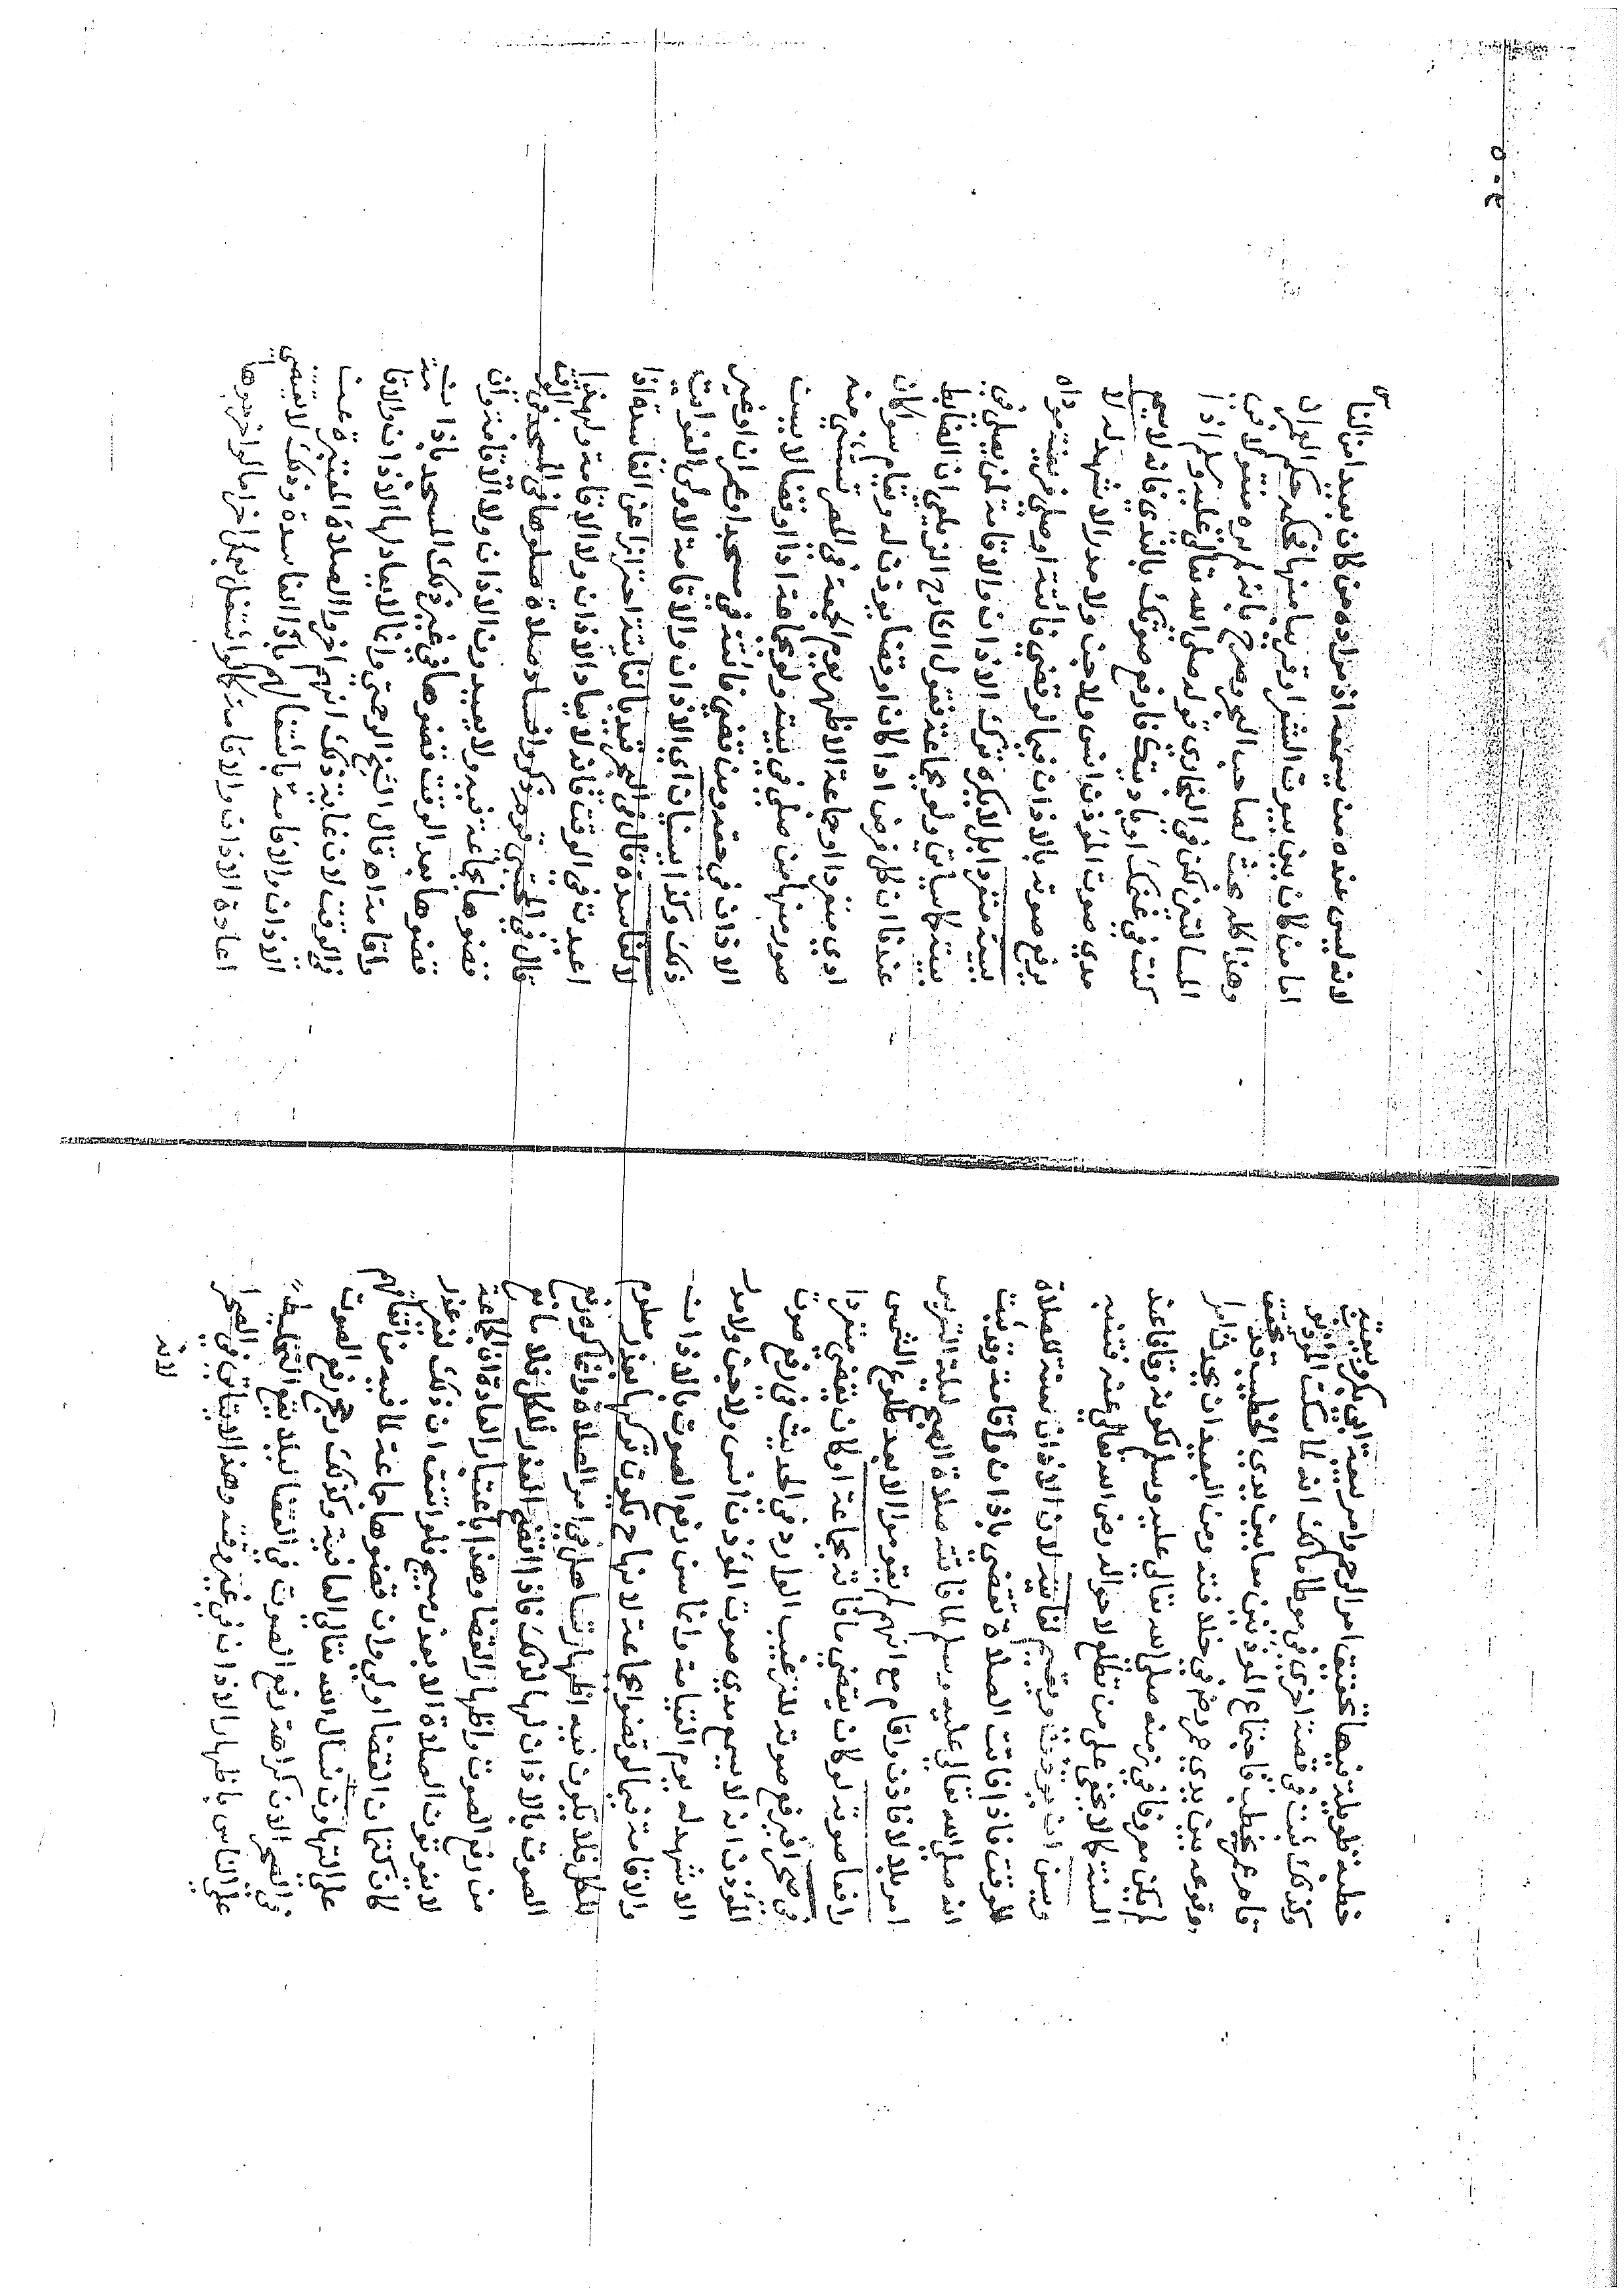 خطبة طويلة فيها تحقيق امر الرجم وامر بيعة ابي بكر
وكذلك ثبت في قصة اخرى في موطا مالك انه لما سكت المؤذنون
قام عمر يخطب فاجتماع المؤذنين معا بين يدي الخطيب قد تحقق
وقوعه بين يدي عمر رضي في خلافته ومن البعيد ان يحدثه امر
لم يكن معروفا في زمنه صلى الله تعالى عليه وسلم لكونه وقافا عند
السنة كما لا يخفى على من تطلع لاحواله رضي الله تعالى عنه فتنبه
ويسن ان يؤذن ويقيم لفائتة لان الاذان سنة للصلاة
لا للوقت فاذا فاتت الصلاة تقضى باذان واقامة وقد ثبت
انه صلى الله تعالى عليه وسلم لما فاتته صلاة الصبح ليلة التعريس
امر بلالا فاذن واقام مع انهم لم يقوموا الا بعد طلوع الشمس
رافعا صوته لو كان يقضي ما فاته بجماعة او كان يقضي منفردا
في صحرا فيرفع صوته للترغيب الوارد في الحديث في رفع صوت
المؤذن انه لا يسمع مدى صوت المؤذن انس ولا جن ولا مدر
الا شهد له يوم القيامة وانما سن رفع الصوت بالاذان
والاقامة فيما لو قضوا بجماعة لانها ح يكون تركها بعذر معلوم
للكل فلا يكون فيه اظهار تساهل في امر الصلاة وانما كره رفع
الصوت بالاذان لها لذلك فاذا اتضح العذر للكل فلا مانع
من رفع الصوت واظهار القضا وهذا باعتبار العادة ان الجماعة
لا يفوتون الصلاة الا بعذر صحيح فلو اتفق ان ذلك لغير عذر
كان كتمان القضا اولى وان قضوها جماعة لما فيه من اتفاقهم
على التهاون نسال الله تعالى العافية وكذلك رجح رفع الصوت
في الصحرا لان كراهة رفع الصوت في القضا لئلا يقع التخليط
على الناس باظهار الاذان في غير وقته وهذا لا يتاتى في الصحرا
لانه
لانه ليس عنده من يسمعه اذ مراده من كان بعيدا من الناس
اما من كان بين بيوت الشعر او قريبا منها فحكمه حكم العمران
وهذا كله بحث لصاحب البحر وصرح بانه لم يره منقولا في
المسالة لكن في البخاري قوله صلى الله تعالى عليه وسلم اذا
كنت في غنمك او باديتك فارفع صوتك بالندى فانه لا يسمع
مدى صوت المؤذن انس ولا جن ولا مدر الا شهد له لا
يرفع صوته بالاذان فيما لو قضى فائتة او صلى فريضة موداه
في بيته منفردا بل لا يكره ترك الاذان والاقامة لمن يصلي في
بيته كما سياتي ولو بجماعة فقول الشارح الزيلعي ان الضابط
عندنا ان كل فرض اداء كان او قضا يؤذن له ويقام سوا كان
ادي منفردا او جماعة الا ظهر يوم الجمعة في المصر تستثنى منه
صور منها من صلى في بيته ولو بجماعة ادا او قضا لا يسن
الاذان في حقه ومن قضى فائتة في مسجد او عمران او غير
ذلك وكذا يسنان اي الاذان والاقامة لاولى الفوائت
لا لفاسدة قال في البحر قيد بالفائتة احترازا عن الفاسدة اذا
اعيدت في الوقت فانه لا يعاد الاذان ولا الاقامة ولهذا
قال في المجتبى قوم ذكروا فساد صلاة صلوها في المسجد في الوقت
قضوها بجماعة فيه ولا يعيدون الاذان ولا الاقامة وان
قضوها بعد الوقت قضوها في غير ذلك المسجد باذان
واقامة اه قال الشيخ الرحمتي وانما لا يعاد لها الاذان والاقا
في الوقت لان غاية ذلك انهم اخروا الصلاة المعتبرة عن
الاذان والاقامة باشتغالهم باداء الفاسدة وذلك لا يقتضي
اعادة الاذان والاقامة كما لو اشتغل بعمل اخر اما لو اخرجوها